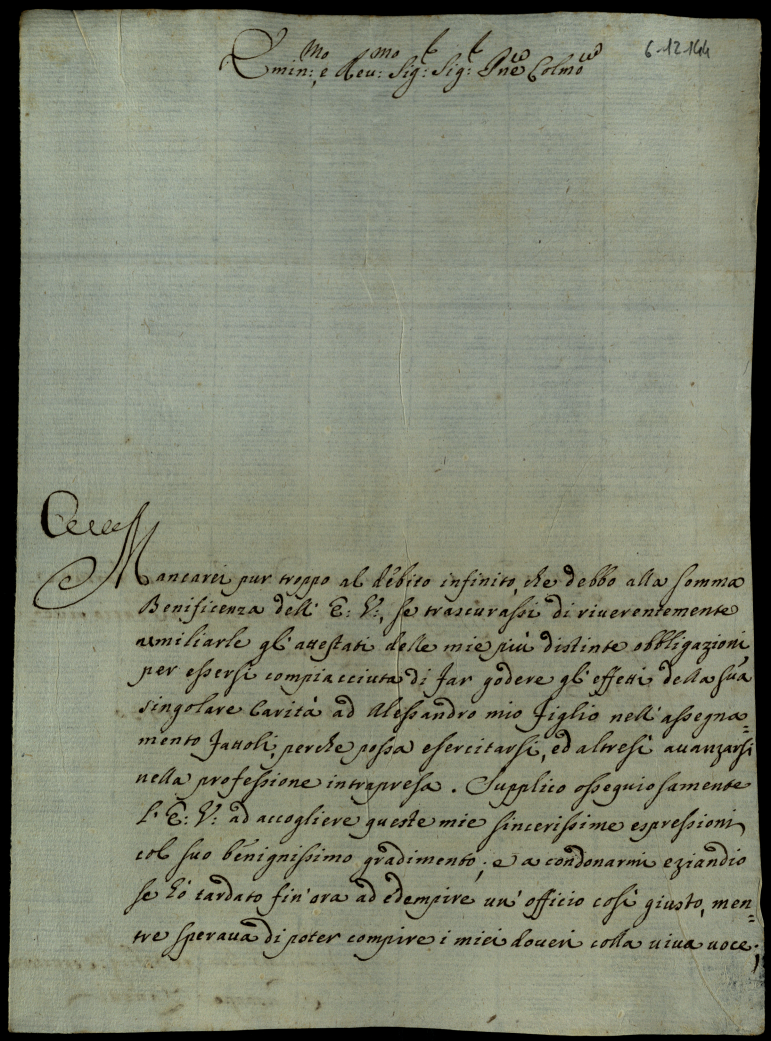 6-12-144
Emin:mo e Reu:mo Sig:r Sig:r Pne Colmo
Mancarei pur troppo al debito infinito, che debbo alla somma
Benificenza dell' E: V:, se trascurassi di riuerentemente
umiliarle gl' attestati delle mie più distinte obbligazioni,
per essersi compiacciuta di far godere gl' effetti della sua
singolare Carità ad Alessandro mio figlio nell' assegna=
mento fattoli, perche possa esercitarsi, ed altresì auanzarsi
nella professione intrapresa. Supplico ossequiosamente
l' E: V: ad accogliere queste mie sincerissime espressioni
col suo benignissimo gradimento; e a condonarmi eziandio
se hò tardato fin' ora ad edempire un' officio così giusto, men=
tre speraua di poter compire i miei doueri colla viva uoce;